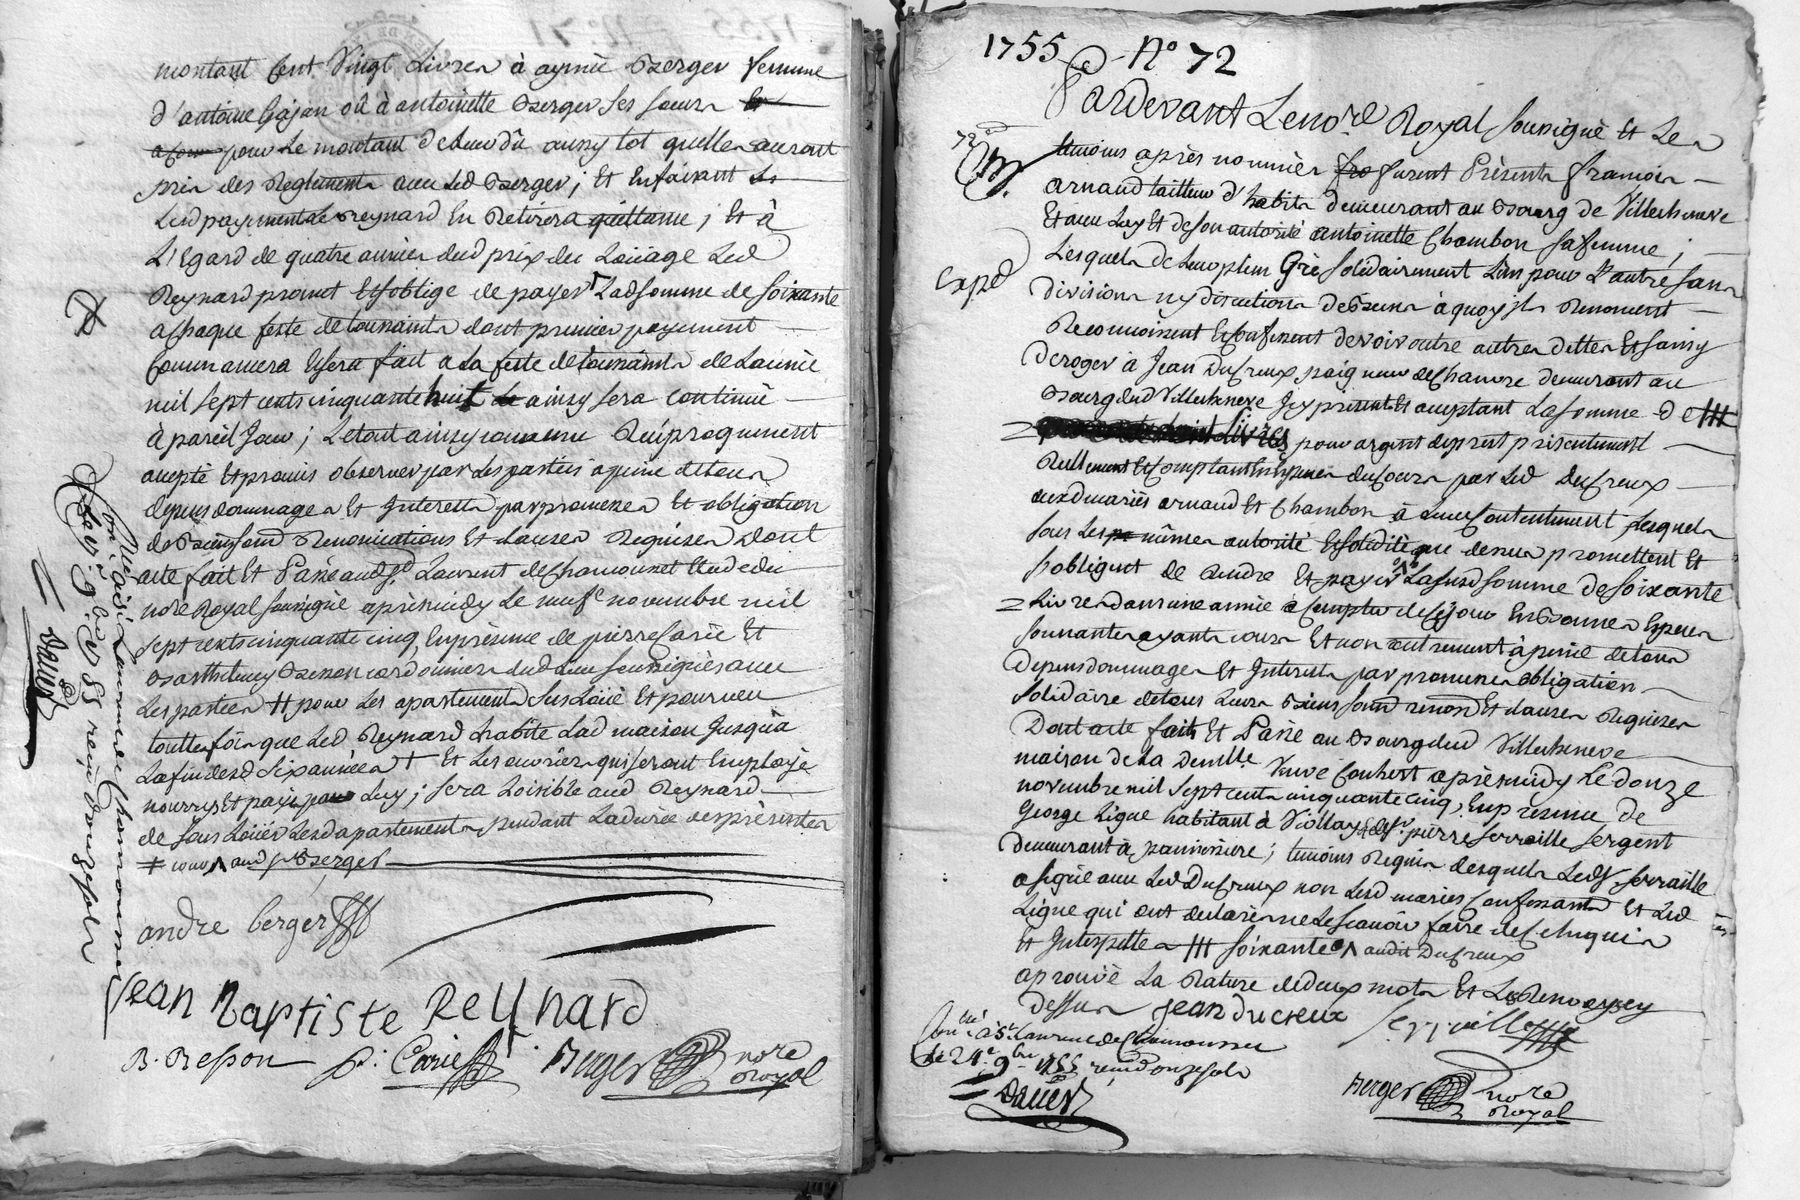 montant Cent Vingt Livres à aymée Berger femme
d'antoine Gajan où à antoinette Berger ses soeurs
pour Le montant de Leur dû aussy tot quelles auront
pris des Reglements avec Led Berger; Et En faisant
Lesd payments Led Reynard En Retirera quittance; Et à
L'Egard de quatre années dud prix du Loüage Led
Reynard promet Et s'oblige de payer Lad somme de soixante
a Chaque feste de toussaints dont premier payement
Commancera Et sera fait a La feste de toussaints de Lannée
mil sept cents cinquante huit ainsy sera continué
à pareil Jour; Le tout ainsy convenu Reciproquement
accepté Et promis observer par Les parties a peine de tous
depens dommages Et Interests par promesses Et obligation
de Biens soud Renonciations Et Clauses Requises dont
acte fait Et Passé aud St Laurent de Chamousset Etude du
nore Royal soussigné après midy Le neuf novembre mil
sept cents cinquante cinq, En présence de pierre Carié Et
Barthelemy Besson cordonniers dud Lieu soussignés avec
Les parties # pour Les apartements sus Loüé Et pourveu
toutte fois que Led Reynard habite Lad maison Jusqu'à
La fin desd six années + Et Les ouvriers qui seront Employé
nourrys Et payés par Luy; sera Loisible aud Reynard
de sous Loüer Lesd apartements pendant La durée des présentes
aud Sr Berger
andre berger
Jean Baptiste Reynard
B. Besson p: Carié Berger nore
Royal
Conllé à St Laurent de Chamousset
Le 9 9bre 1755 reçu douze sols
Dauer
1755 N° 72
Pardevant Le nore Royal soussigné Et Les
temoins après nommés furent Présents François
arnaud tailleur d'habits demeurant au Bourg de Villecheneve
Et avec Luy Et de son autorité antoinette Chambon sa femme;
Expd
Lesquels de Leur plein Gré solidairement L'un pour L'autre sans
division ny discution de Biens à quoy ils Renoncent
Reconnoissent Et Confessent devoir outre autres dettes Et sans y
deroger à Jean Ducreux peigneur de Chanvre demeurant au
Bourg dud Villecheneve Icy présent Et acceptant La somme de #
Livres pour argent de prest présentement
Reellement Et Comptant En Espèces du Cours par Led Ducreux
auxd mariés arnaud Et Chambon à Leur Contentement, Lesquels
sous Les mêmes autorité Et solidité que dessus promettent Et
s'obligent de rendre Et payer La susd somme de soixante
Livres dans une année à Compter de Ce jour En Bonnes Espèces
sonnantes ayants cours Et non autrement à peine de tous
depens dommages Et Interests par promesse obligation
solidaire de tous Leurs Biens soud renond Et Clauses Requises
Dont acte fait Et Passé au Bourg dud Villecheneve
maison de La Demlle Veuve Couhert après midy Le douze
novembre mil sept cents cinquante cinq, En présence de
George Ligue habitant à Viollay & de Sr pierre serraille sergent
demeurant à pannissiere; temoins Requis desquels Led Sr serraille
a signé avec Led Ducreux non Lesd mariés Confessants Et Led
Ligue qui ont declaré ne Le sçavoir faire de Ce Enquis
Et Interpellés # soixante audit Ducreux
aprouvé La Rature de deux mots Et Le Renvoy cy
dessus Jean Ducreux serraille
Conllé à St Laurent de Chamousset
Le 24e 9bre 1755 reçu douze sols
Dauer
Berger nore
Royal